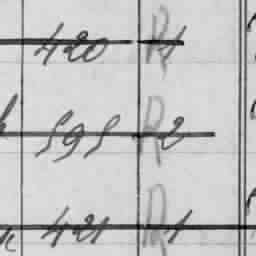 420 R 1
595 R 2
421 R 1